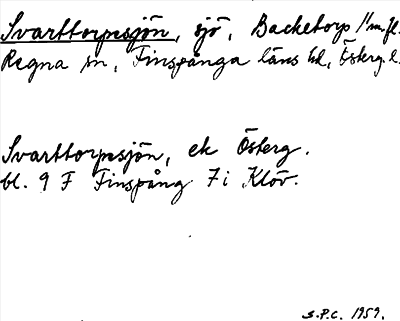 Svarttorpssjön, sjö, Backetorp m.fl.
Regna sn, Finspånga läns hd, Österg. l.
Svarttorpssjön, ek Österg.
bl. 9 F Finspång 7 i Klöv.
S.P.C. 1959.